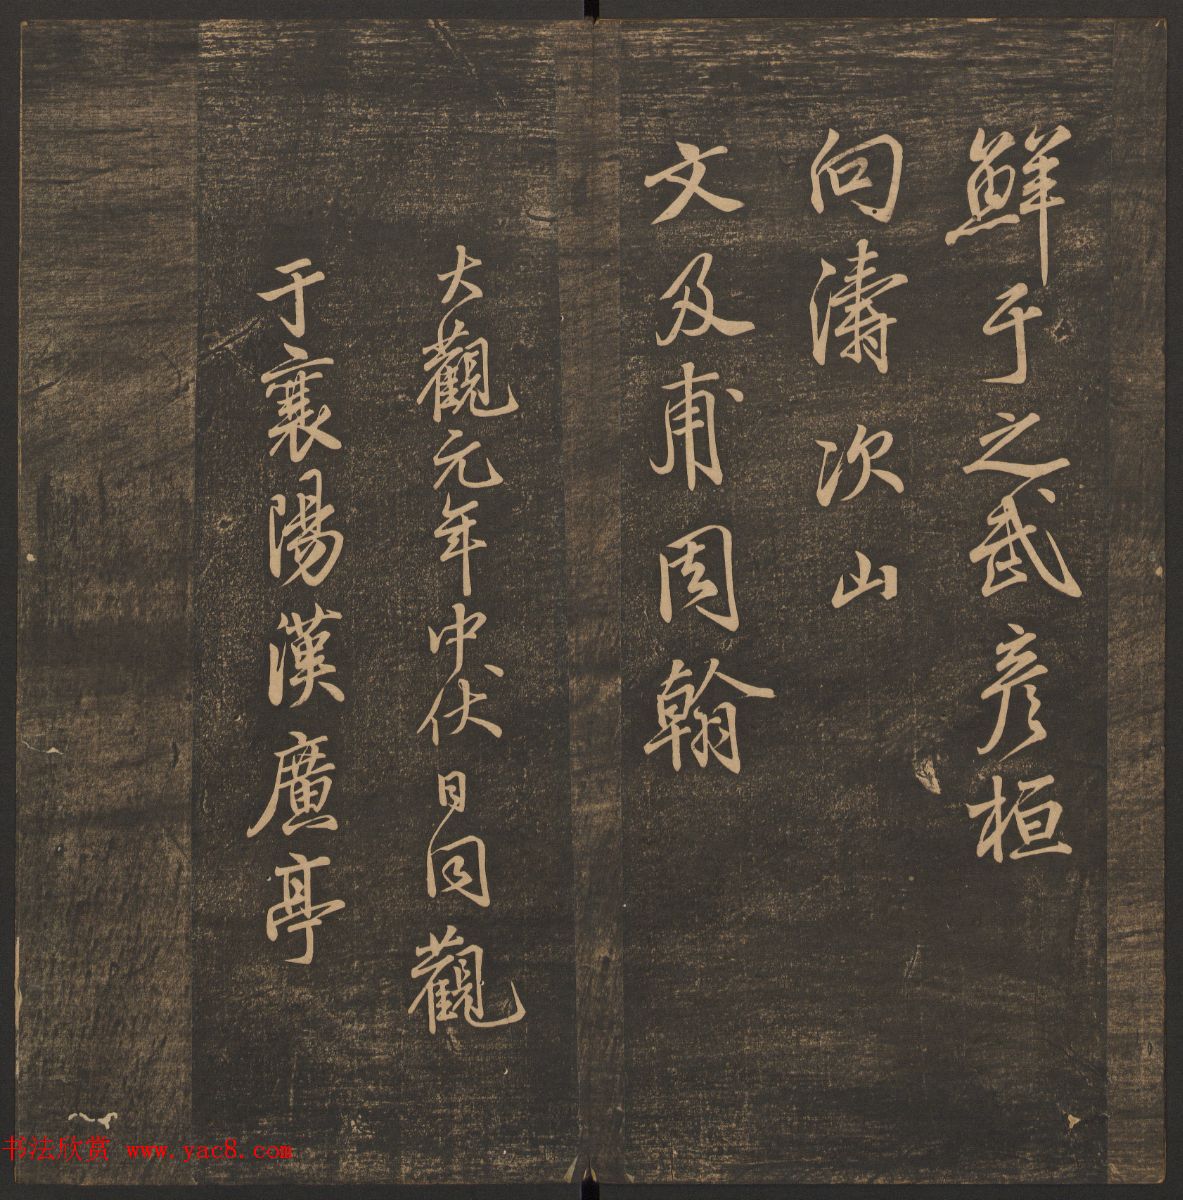 鮮于之武彦桓
向濤次山
文及甫周翰
大觀元年中伏日同觀
于襄陽漢廣亭
书法欣赏 www.yac8.com